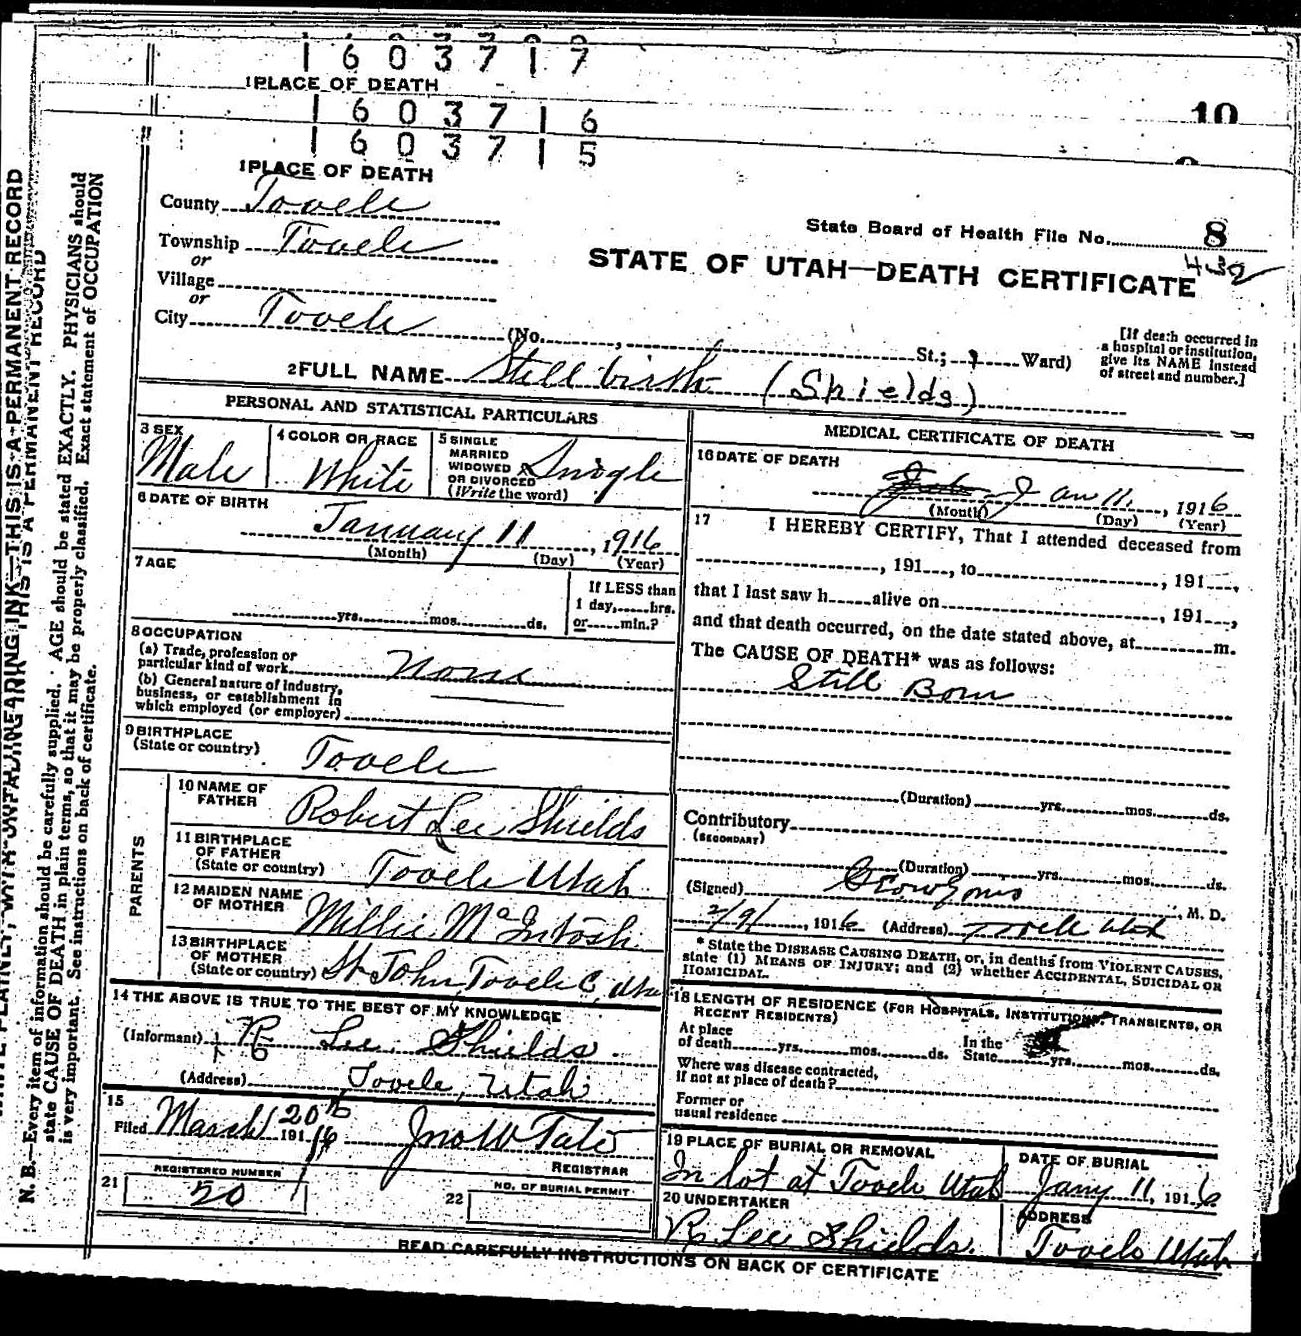 1 6 0 3 7 1 7
1 PLACE OF DEATH
10
1 6 0 3 7 1 6
1 6 0 3 7 1 5
1 PLACE OF DEATH
County Tooele
State Board of Health File No. 8
Township Tooele
or
STATE OF UTAH—DEATH CERTIFICATE
432
Village
or
City Tooele (No. , St.; Ward)
[If death occurred in
a hospital or institution,
give its NAME instead
of street and number.]
2 FULL NAME Still birth (Shields)
PERSONAL AND STATISTICAL PARTICULARS
3 SEX
Male
4 COLOR OR RACE
White
5 SINGLE
MARRIED
WIDOWED
OR DIVORCED
(Write the word)
Single
6 DATE OF BIRTH
January 11, 1916
(Month) (Day) (Year)
7 AGE
yrs. mos. ds.
If LESS than
1 day, hrs.
or min.?
8 OCCUPATION
(a) Trade, profession or
particular kind of work None
(b) General nature of industry,
business, or establishment in
which employed (or employer)
9 BIRTHPLACE
(State or country) Tooele
PARENTS
10 NAME OF
FATHER Robert Lee Shields
11 BIRTHPLACE
OF FATHER
(State or country) Tooele Utah
12 MAIDEN NAME
OF MOTHER Millie McIntosh
13 BIRTHPLACE
OF MOTHER
(State or country) St John Tooele C, Utah
14 THE ABOVE IS TRUE TO THE BEST OF MY KNOWLEDGE
(Informant) R Lee Shields
(Address) Tooele, Utah
15
Filed March 20th 1916 Jno W Tate
REGISTRAR
21 REGISTERED NUMBER
20
22 NO. OF BURIAL PERMIT
MEDICAL CERTIFICATE OF DEATH
16 DATE OF DEATH
Jan 11, 1916
(Month) (Day) (Year)
17 I HEREBY CERTIFY, That I attended deceased from
, 191 , to , 191 ,
that I last saw h alive on , 191 ,
and that death occurred, on the date stated above, at m.
The CAUSE OF DEATH* was as follows:
Still Born
(Duration) yrs. mos. ds.
Contributory
(SECONDARY)
(Duration) yrs. mos. ds.
(Signed) , M. D.
2/9/, 1916 (Address) Tooele Utah
* State the DISEASE CAUSING DEATH, or, in deaths from VIOLENT CAUSES,
state (1) MEANS OF INJURY; and (2) whether ACCIDENTAL, SUICIDAL OR
HOMICIDAL.
18 LENGTH OF RESIDENCE (FOR HOSPITALS, INSTITUTIONS, TRANSIENTS, OR
RECENT RESIDENTS)
At place
of death yrs. mos. ds.
In the
State yrs. mos. ds.
Where was disease contracted,
if not at place of death?
Former or
usual residence
19 PLACE OF BURIAL OR REMOVAL
In lot at Tooele Utah
DATE OF BURIAL
Jany 11, 1916
20 UNDERTAKER
R Lee Shields.
ADDRESS
Tooele Utah
READ CAREFULLY INSTRUCTIONS ON BACK OF CERTIFICATE
WITH UNFADING INK—THIS IS A PERMANENT RECORD
THIS IS A PERMANENT RECORD
N. B.—Every item of information should be carefully supplied. AGE should be stated EXACTLY. PHYSICIANS should
state CAUSE OF DEATH in plain terms, so that it may be properly classified. Exact statement of OCCUPATION
is very important. See instructions on back of certificate.